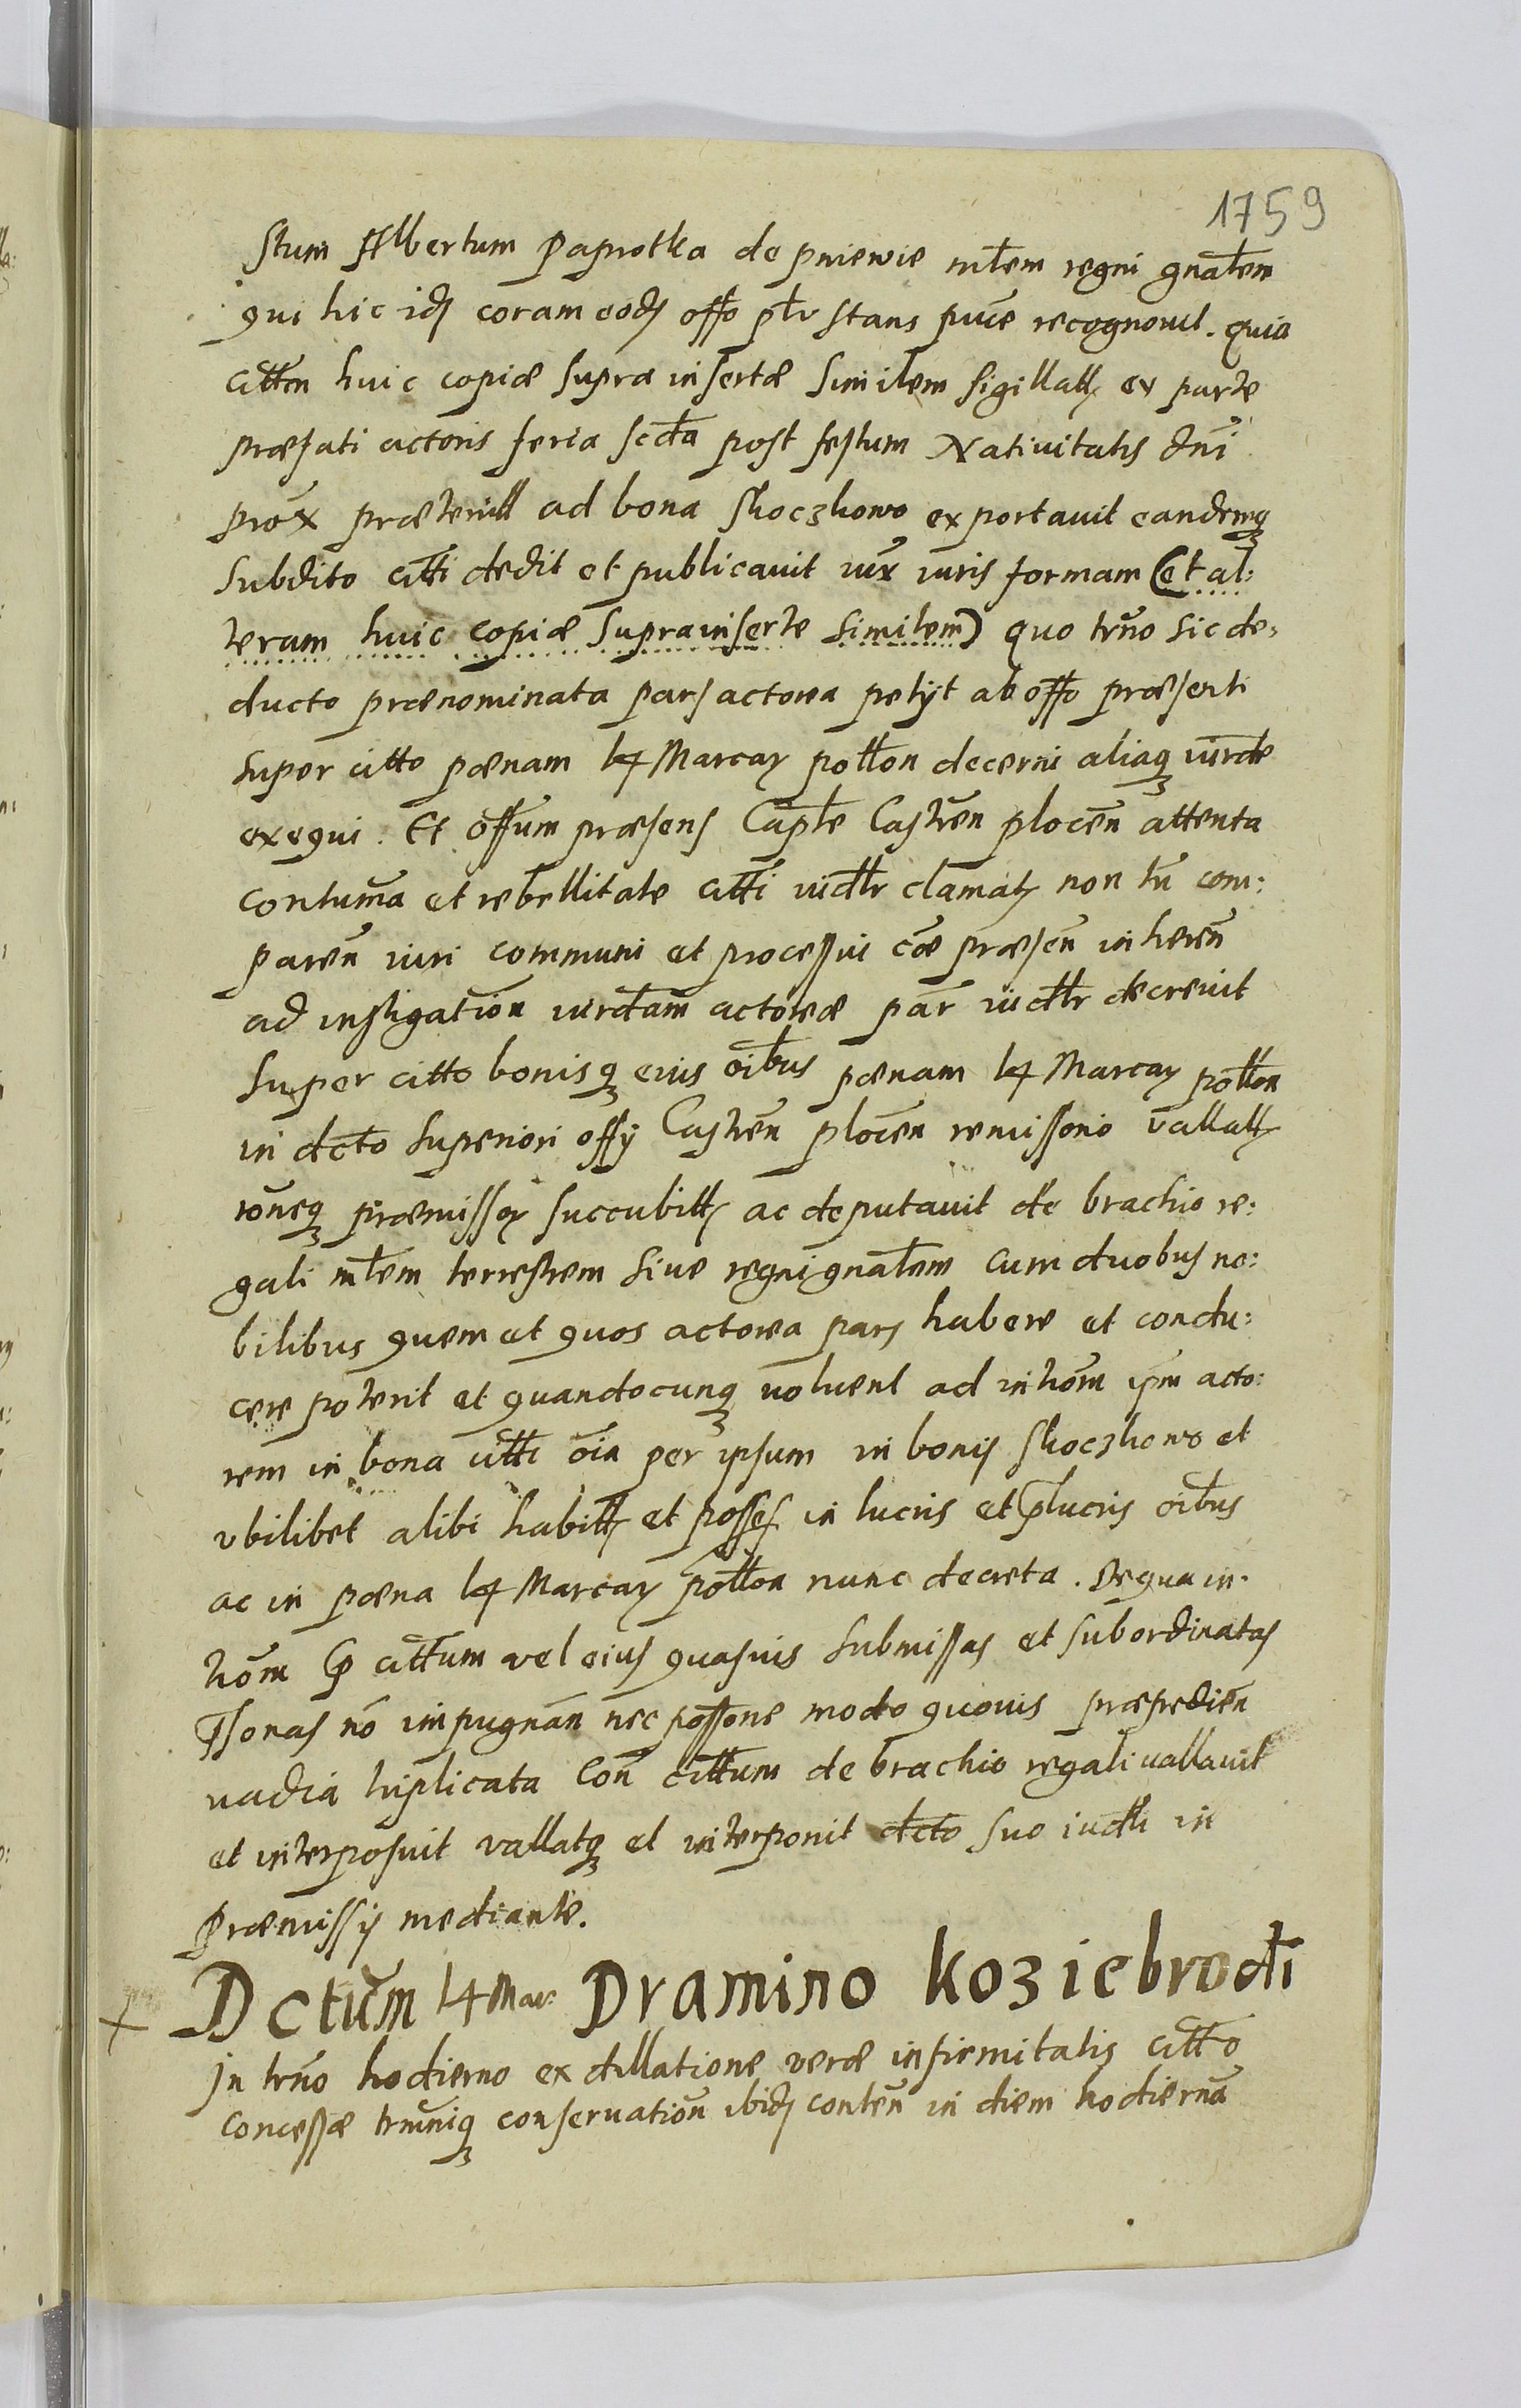 1759
stum Albertum Paprotka de pniewie mltem regni gnalem
qui hic idz coram eodz offo plr stans puce recognouit. quia
citten huic copiæ supra insertæ similem sigillatz ex parte
præfati actoris feria scda post festum Natiuitatis dni
prox præteriti ad bona Skoczkowo exportauit eandemq
subdito citti dedit et publicauit iux iuris formam (et al:
teram huic copiæ suprainserte similem) quo trno sic de:
ducto prænominata pars actorea petijt ab offo præsenti
super citto pænam 14 Marcar pollon decerni aliaq iurde
exequi. Et offum præsens Caple Castren plocen attenta
contuma et rebellitate citti iudlr clamatz non tn com:
paren iuri communi et processui cæ præsen inheren
ad instigation iurdam actoreæ par iudlr decreuit
super citto bonisq eius oibus pænam 14 Marcar pollon
in dcto superiori offy Castren plocen remissorio vallatz
roneq præmissor succubittz ac deputauit de brachio re:
gali mltem terrestrem siue regni gnalem cum duobus no:
bilibus quem et quos actorea pars habere et condu:
cere poterit et quandocunq uoluent ad introm ipm acto:
rem in bona citti oia per ipsum in bonis Skoczkowo et
vbilibet alibi habittz et posses in lucris et plucris oibus
ac in pæna 14 Marcar pollon nunc decreta. De qua in:
trom p cittum vel eius quasuis submissas et subordinatas
psonas no impugnan nec possone modo quouis præpedien
uadia triplicata Con cittum de brachio regali vallauit
et interposuit vallatq et interponit dcto suo iudli in
Præmissis mediante.
Dctum 14 Mar: Dramino Koziebrodi
In trno hodierno ex dillatione veræ infirmitatis citto
concessæ trmniq conseruation ibidz conten in diem hodierna